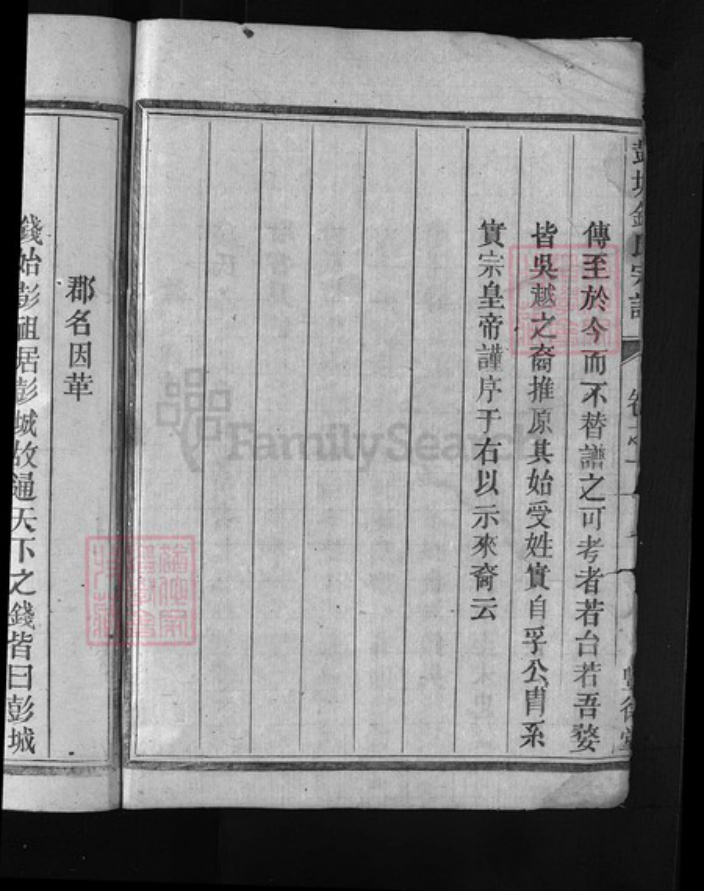 彭城錢氏宗譜 卷之一
傳至於今而不替譜之可考者若台若吾婺
皆吳越之裔推原其始受姓實自孚公胄系
實宗皇帝謹序于右以示來裔云
郡名因革
錢始彭祖居彭城故通天下之錢皆曰彭城
FamilySearch